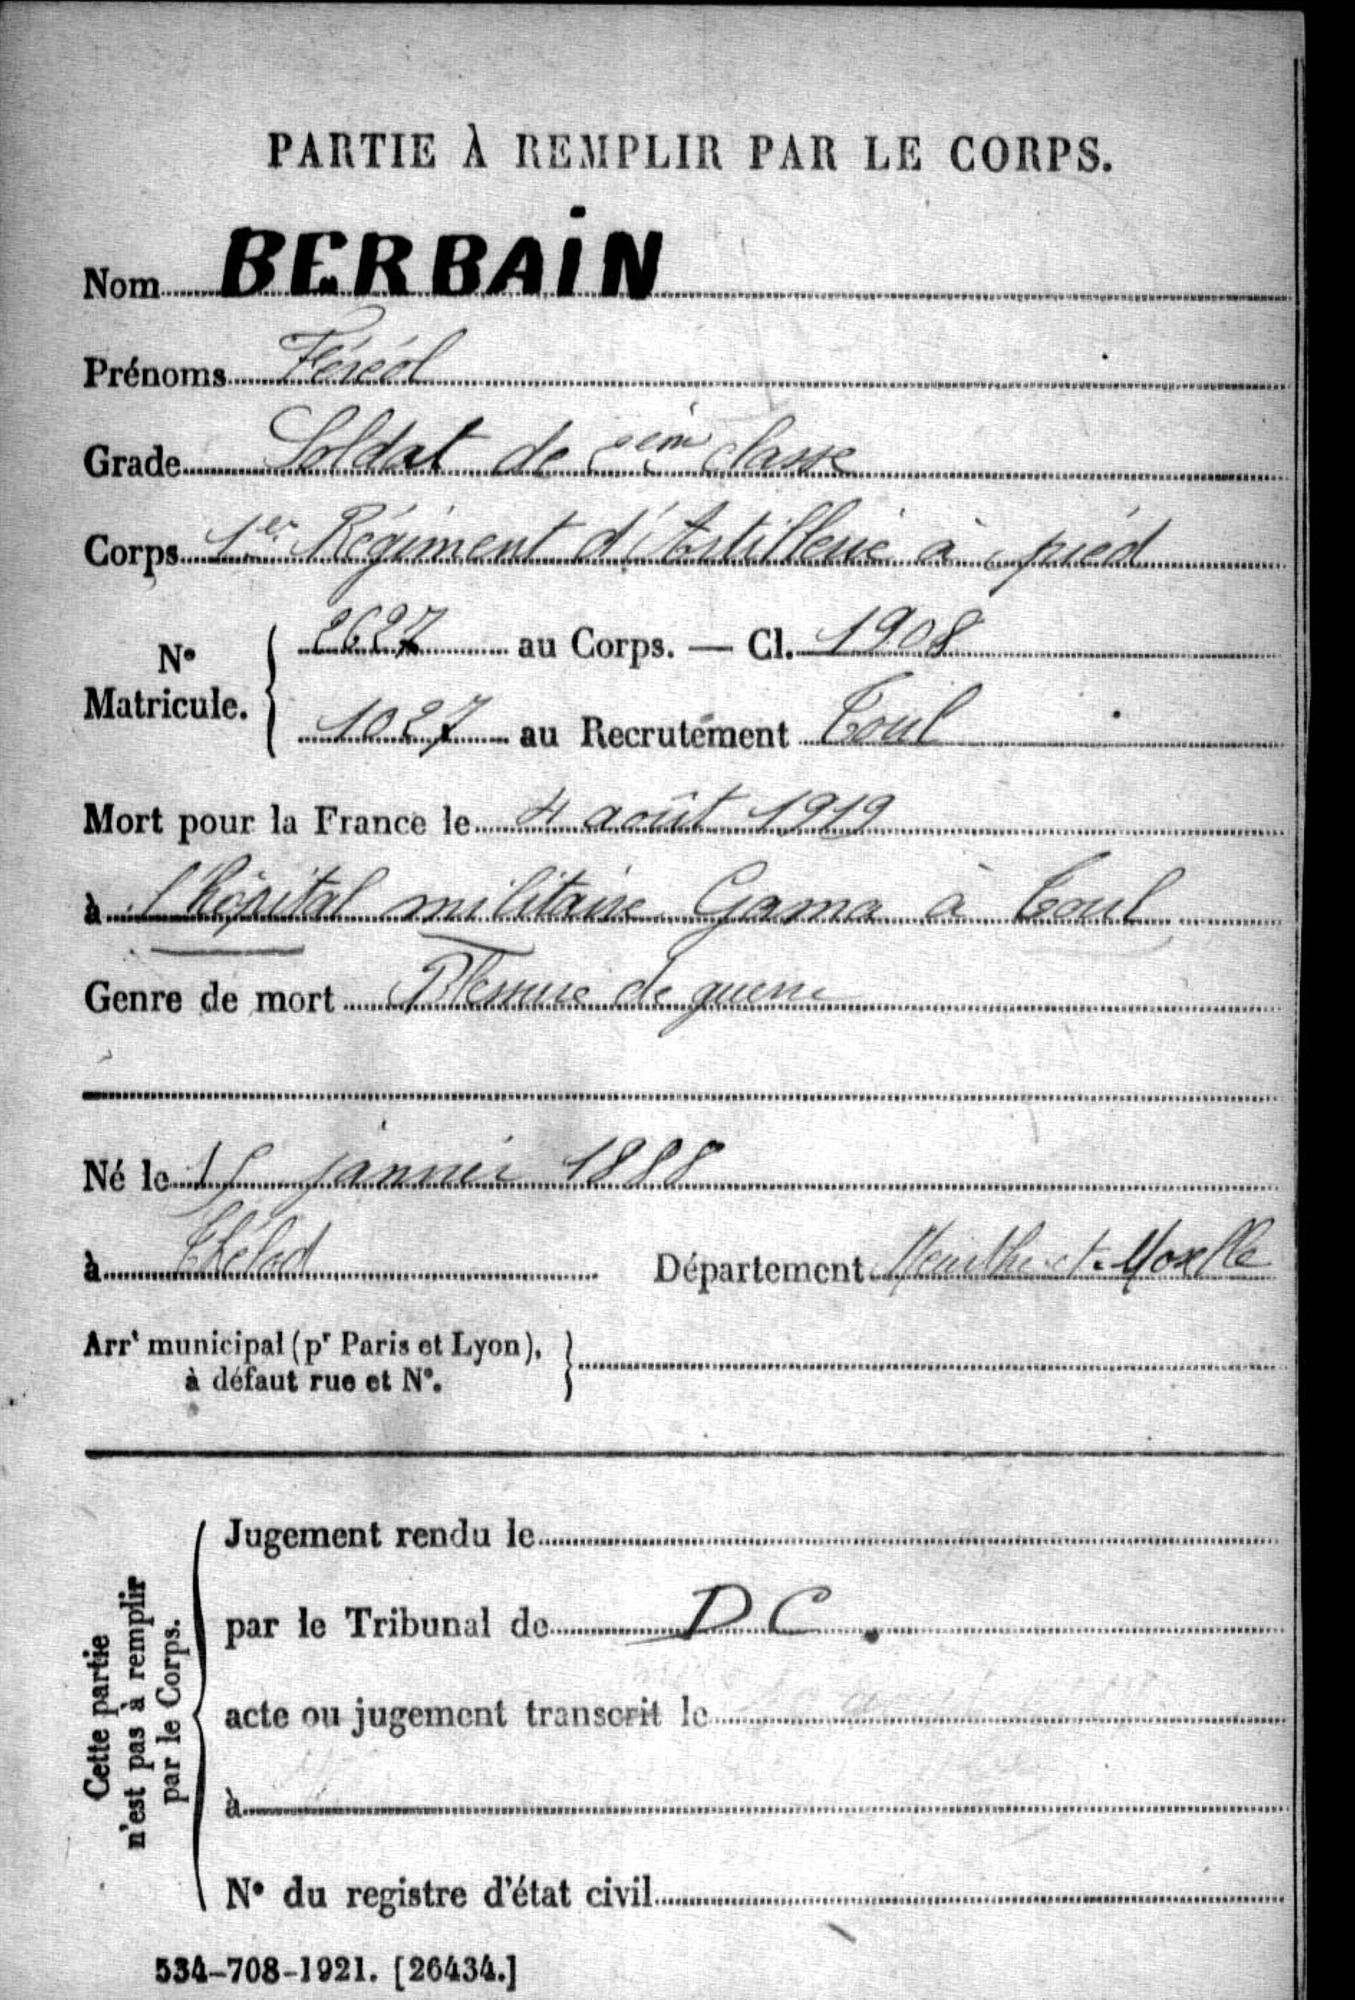 PARTIE À REMPLIR PAR LE CORPS.
Nom BERBAIN
Prénoms Féréol
Grade Soldat de 2ème classe
Corps 1er Régiment d'Artillerie à pied
No Matricule. { 2627 au Corps. — Cl. 1908
1027 au Recrutement Toul
Mort pour la France le 4 août 1919
à l'hôpital militaire Gama à Toul
Genre de mort Blessure de guerre
Né le 15 janvier 1888
à Thélod Département Meurthe-et-Moselle
Arrt municipal (pr Paris et Lyon), à défaut rue et No. }
Cette partie n'est pas à remplir par le Corps. {
Jugement rendu le
par le Tribunal de D C.
acte ou jugement transcrit le
à
No du registre d'état civil
534-708-1921. [26434.]